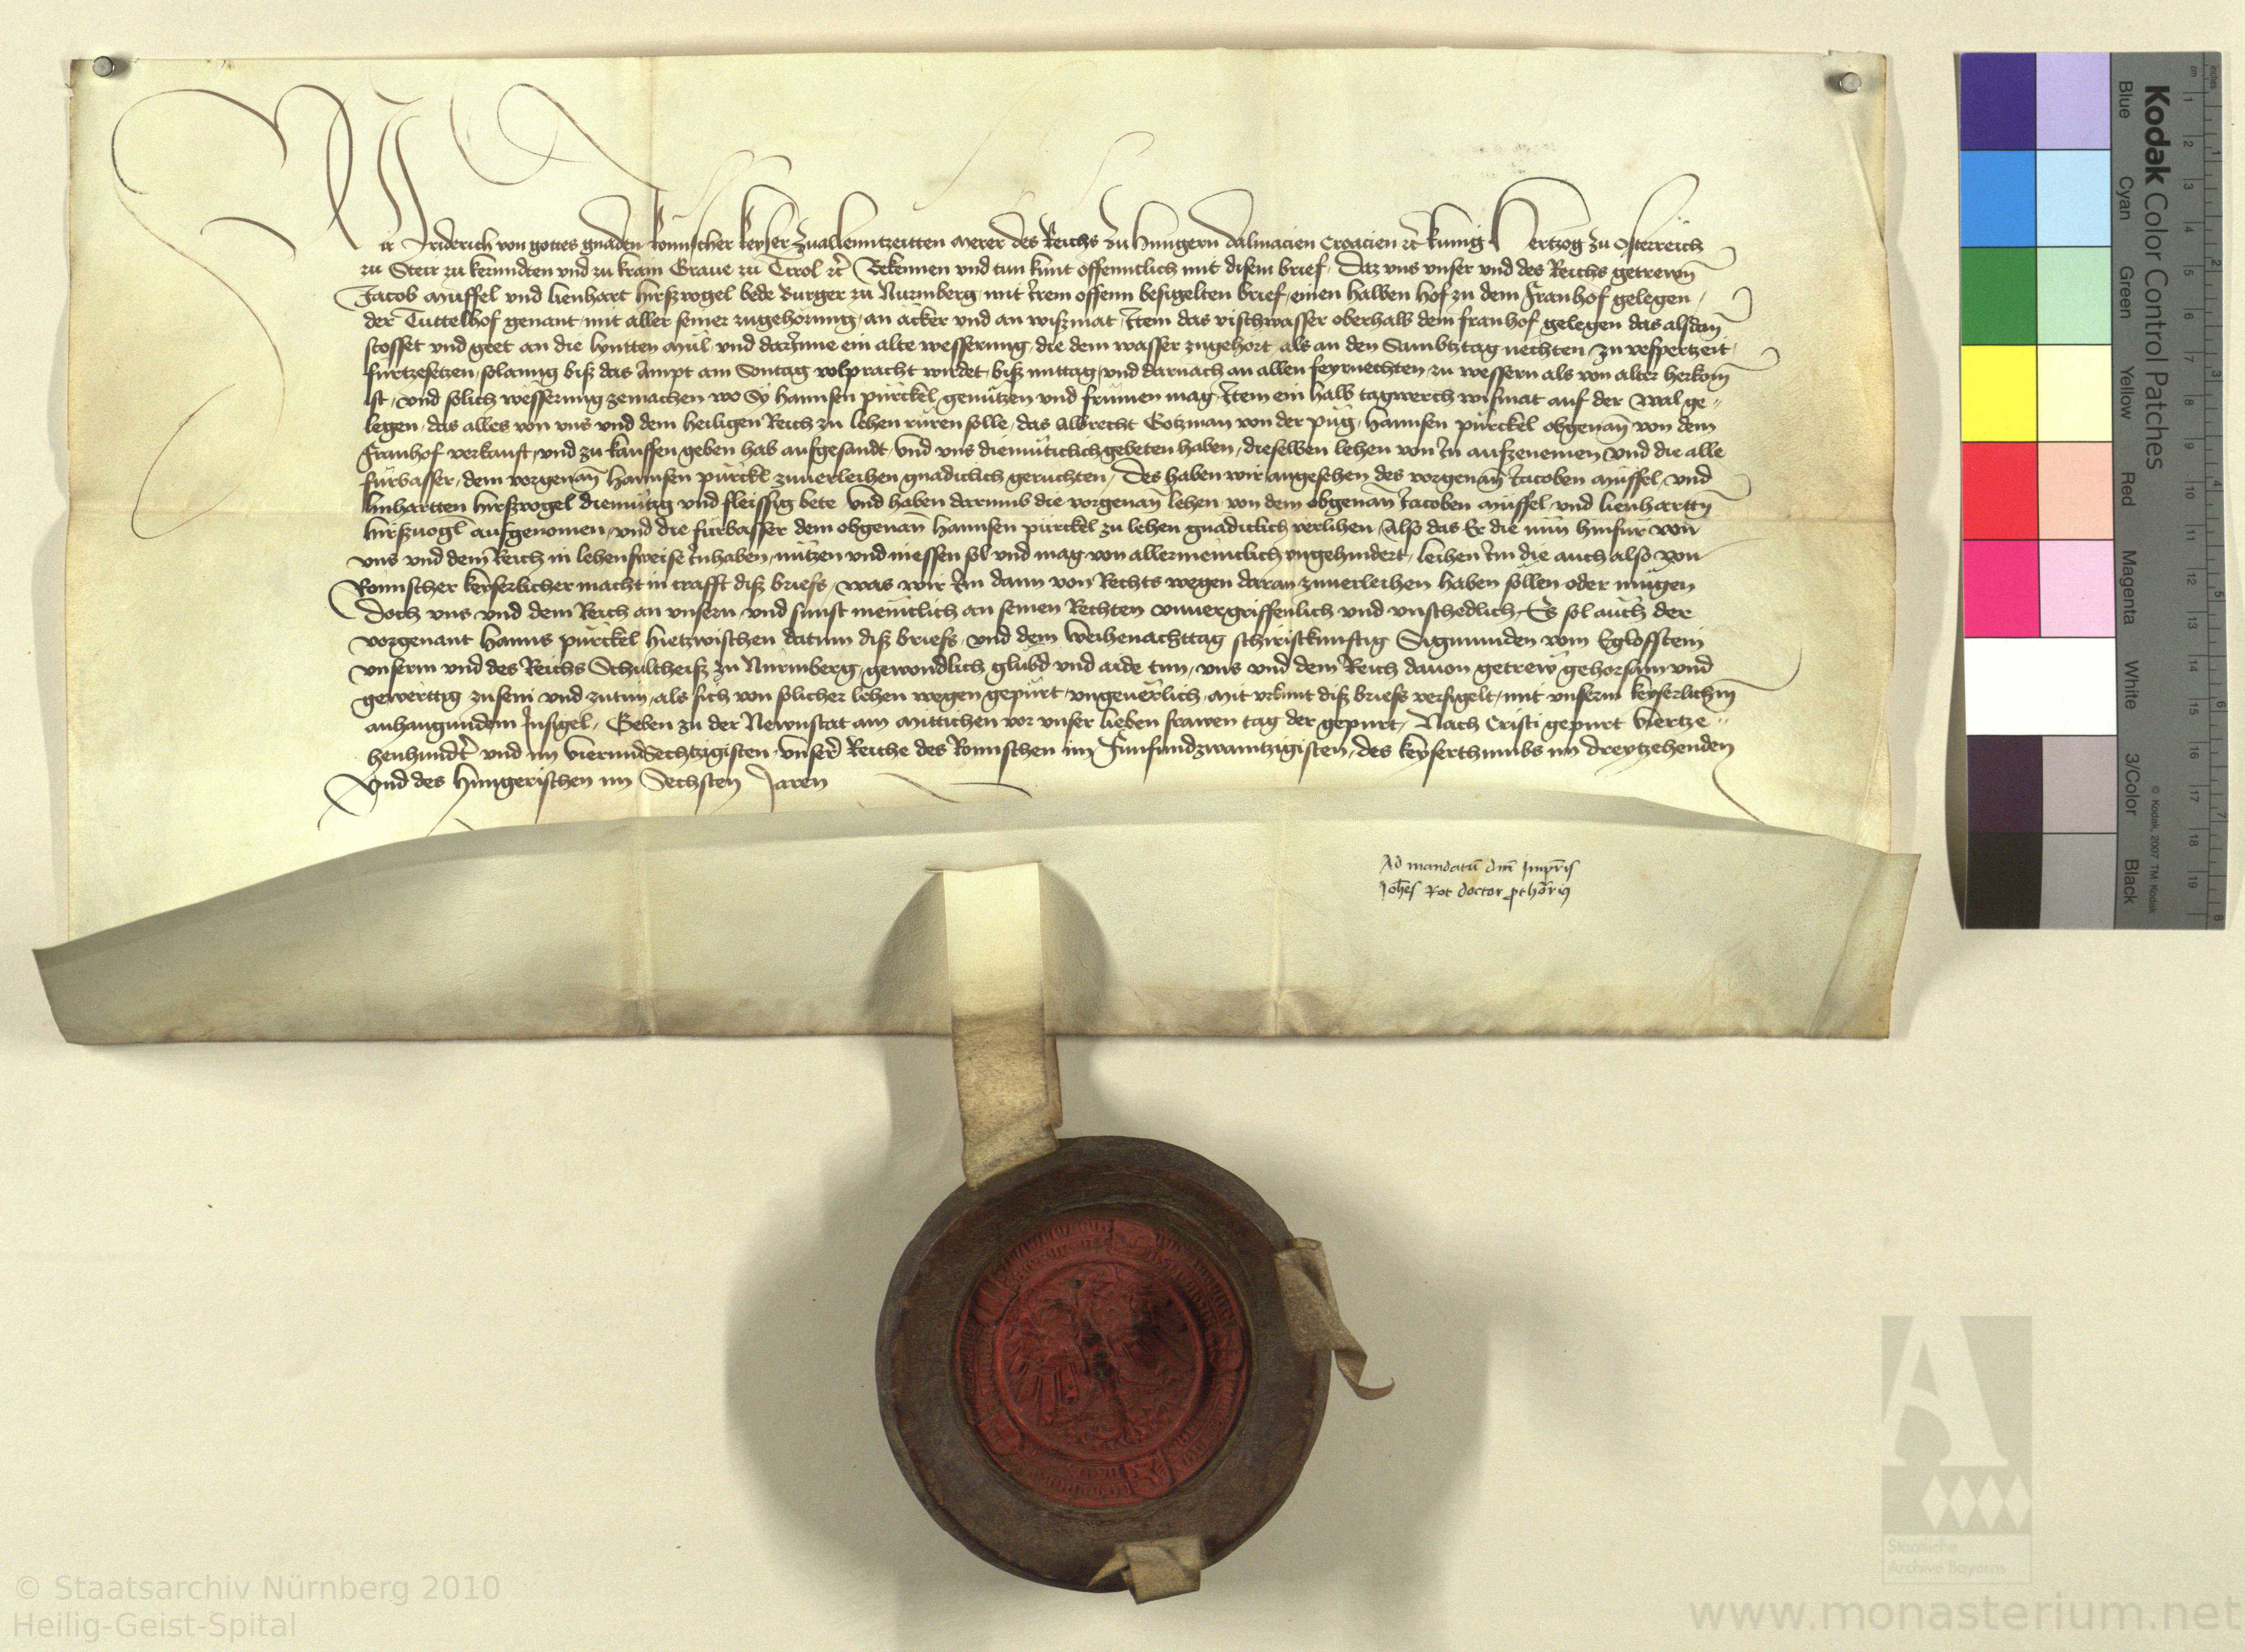 Wir Friderich von gottes gnaden Romischer keyser zuallenntzeitten merer des Reichs zu Hungern Dalmacien Croacien etc kunig Hertzog zu Osterreich
zu Steir zu kernndten vnd zu krain Graue zu Tirol etc Bekennen vnd tun kunt offenntlich mit disem brief, Daz vns vnser vnd des Reichs getrewn
Jacob Müffel vnd lienhart hirßvogel bede Burger zu Nurmberg mit irem offenn besigelten brief, einen halben hof zu dem Franhof gelegen,
der Tuttelhof genant, mit aller seiner zugehörung, an acker vnd an wißmat, Item das vischwasser oberhalb dem franhof gelegen das alsdan
stosset vnd geet an die lyntten Mül, vnd darInne ein alte wesserung, die dem wasser zugehort, als an den Sambtztag nechten zu vesperzeit,
fürtzesetzen, solanng biß das Ampt am Sontag volpracht wirdet, biß mittag, vnd darnach an allen feyrnechten zu wessern als von alter herkom
ist, vnd solich wesserung zemachen wo Sy hannsen pürckel, genützen vnd frümen mag, Item ein halb tagwerch wismat auf der Wal ge-
legen, das alles von vns vnd dem heiligen Reich zu lehen rüren solle, das Albrecht Gotzman von der püg, hannsen pürckel obgenan von dem
Franhof verkauft, vnd zu kauffen geben hab aufgesandt, vnd vns diemüticlich gebeten haben, dieselben lehen von In aufzenemen vnd die alle
fürbasser, dem vorgenan hannsen pürckl zuuerleihen gnadiclich geruchten, Des haben wir angesehen des vorgenan Jacoben Müffel, vnd
linhartten hirßvogel diemütig vnd fleissig bete vnd haben darumb die vorgenan lehen von dem obgenan Jacoben Müffel, vnd lienhartten
hirßuogl aufgenomen, vnd die fürbasser dem obgenan hannsen pürckel zu lehen gnädiclich verlihen, Also das Er die nün hinfür von
vns vnd dem Reich in lehensweise Innhaben, nützen vnd niessen sol vnd mag von allermeniclich vngehindert, leihen Im die auch also von
Romischer keyserlicher macht in crafft diß briefs, was wir Im dann von Rechts wegen daran zuuerleihen haben söllen oder mügen
Doch vns vnd dem Reich an vnsern vnd sunst meniclich an seinen Rechten vnuergriffenlich vnd vnschedlich, Es sol auch der
vorgenant hanns pürckel hietzwischen datum diß briefs, vnd dem weihenachttag schiristkunftig Sigmunden vom Eglofstein
vnserm vnd des Reichs Schultheiß zu Nürmberg, gewondlich, glübd vnd aide tun, vns vnd dem Reich dauon getrew gehorsam vnd
gewerttig zusein vnd zutun, als sich von solicher lehen wegen gepürt vngeuerlich, Mit vrkunt diß briefs versigelt, mit vnserm keyserlichm
anhangundem Insigel, Geben zu der Newnstat am Mittichen vor vnser lieben frawen tag der gepurt, Nach Cristi gepurt viertze-
henhundt vnd im vierundSechtzigisten, vnser Reiche des Romischen im Funfundzwanntzigisten, des keyserthumbs im dreytzehenden
Vnd des Hungerischen im Sechsten Jaren
Ad mandatū dni Impris
Johes Rot doctor pthori9
Kodak Color Control Patches
Blue
Cyan
Green
Yellow
Red
Magenta
White
3/Color
Black
© Kodak, 2007 TM: Kodak
cm 1 2 3 4 5 6 7 8 9 10 11 12 13 14 15 16 17 18 19
inches 1 2 3 4 5 6 7 8
© Staatsarchiv Nürnberg 2010
Heilig-Geist-Spital
Staatliche
Archive Bayerns
www.monasterium.net